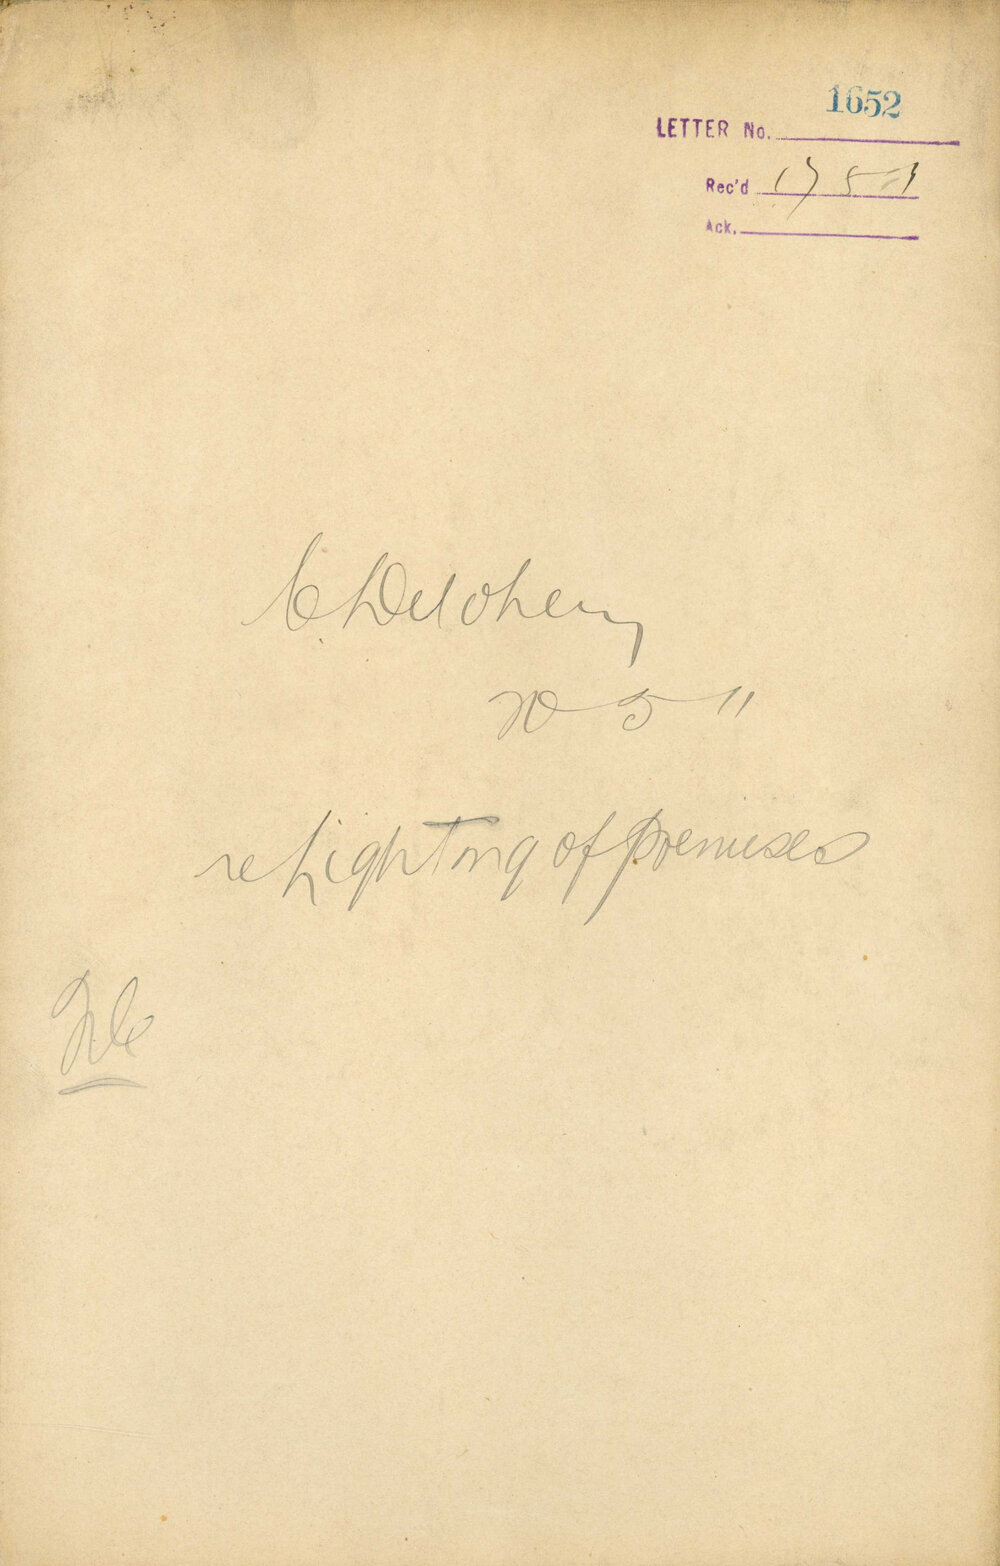 1652
LETTER No.
Rec'd 17 5 11
Ack.
5 11
re Lighting of premises
File